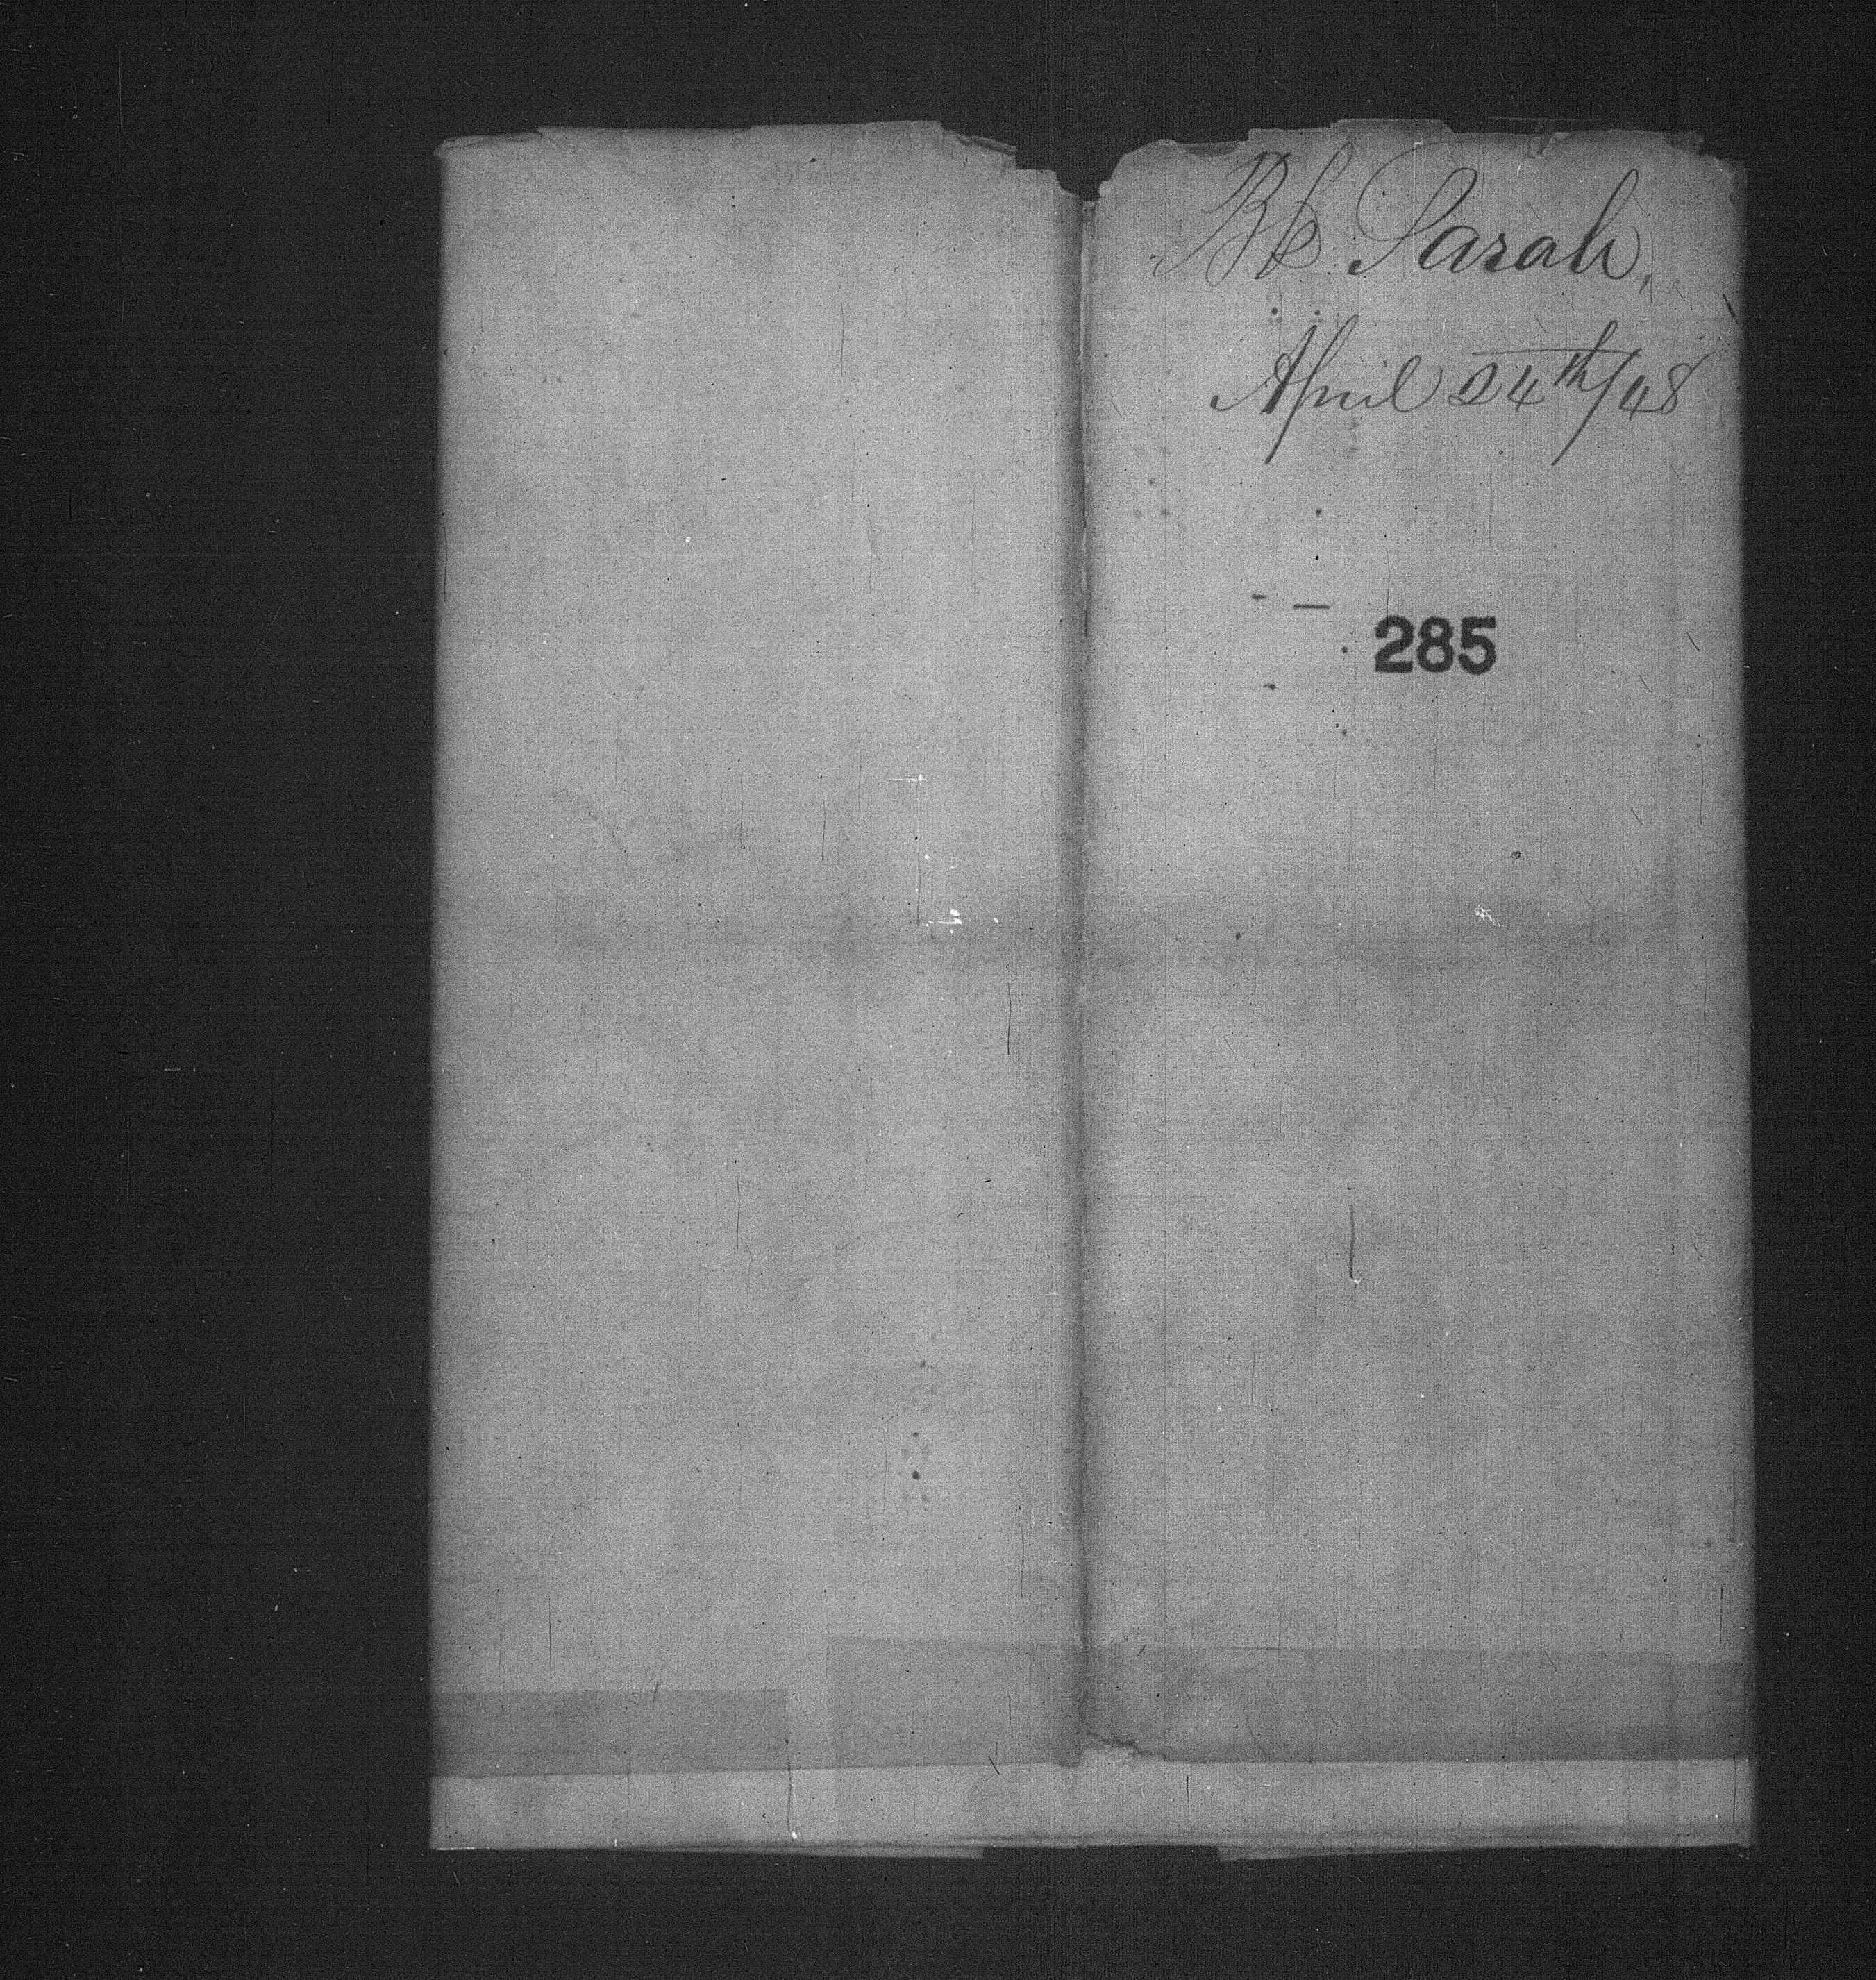 Bk Sarah,
April 24th/48
285